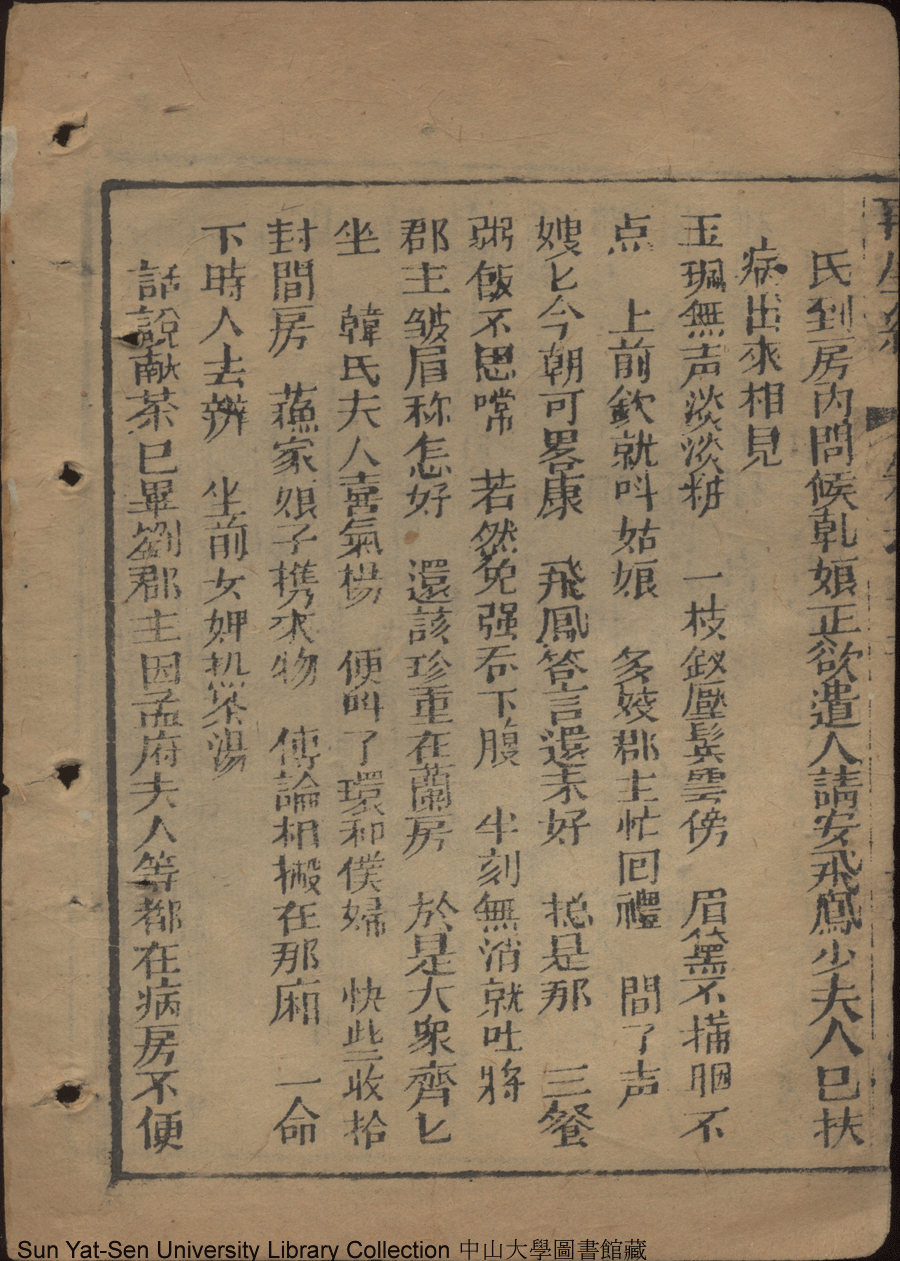 再生緣
氏到房內問候乹娘正欲遣人請安飛鳳少夫人已扶
病出來相見
玉珮無声淡淡粧　一枝釵壓鬂雲傍　眉黛不描胭不
点　上前欽就呌姑娘　多嬌郡主忙回禮　問了声
嫂匕今朝可畧康　飛鳳答言還未好　摠是那　三餐
粥飯不思嚐　若然免强吞下腹　半刻無消就吐將
郡主皱眉称怎好　還該珍重在蘭房　於是大衆齊匕
坐　韓氏夫人喜氣楊　便叫了環和僕婦　快些收拾
封間房　蘓家娘子携來物　傳論相搬在那廂　一命
下時人去辨　坐前女婢埶茶湯
話說献茶已畢劉郡主因孟府夫人等都在病房不便
Sun Yat-Sen University Library Collection 中山大學圖書館藏